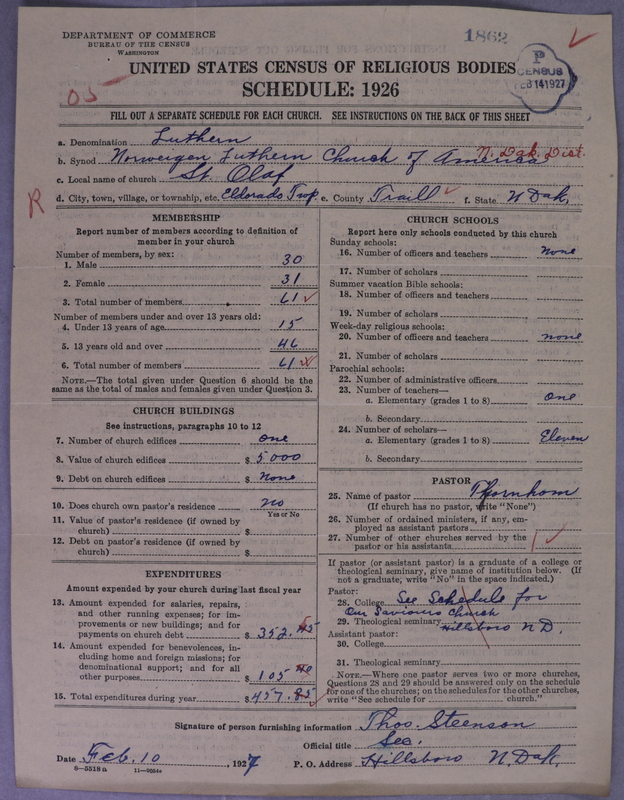 DEPARTMENT OF COMMERCE
BUREAU OF THE CENSUS
WASHINGTON
1862
P
CENSUS
FEB 14 1927
UNITED STATES CENSUS OF RELIGIOUS BODIES
SCHEDULE: 1926
05
FILL OUT A SEPARATE SCHEDULE FOR EACH CHURCH. SEE INSTRUCTIONS ON THE BACK OF THIS SHEET
a. Denomination Luthern
b. Synod Norweigen Luthern Church of America N. Dak. Dist.
c. Local name of church St. Olaf
R
d. City, town, village, or township, etc. Eldorado Twp. e. County Traill f. State N Dak.
MEMBERSHIP
Report number of members according to definition of
member in your church
Number of members, by sex:
1. Male 30
2. Female 31
3. Total number of members 61
Number of members under and over 13 years old:
4. Under 13 years of age 15
5. 13 years old and over 46
6. Total number of members 61
NOTE.—The total given under Question 6 should be the
same as the total of males and females given under Question 3.
CHURCH BUILDINGS
See instructions, paragraphs 10 to 12
7. Number of church edifices one
8. Value of church edifices $ 5000
9. Debt on church edifices $ None
10. Does church own pastor's residence no
Yes or No
11. Value of pastor's residence (if owned by
church) $
12. Debt on pastor's residence (if owned by
church) $
EXPENDITURES
Amount expended by your church during last fiscal year
13. Amount expended for salaries, repairs,
and other running expenses; for im-
provements or new buildings; and for
payments on church debt $ 352.45
14. Amount expended for benevolences, in-
cluding home and foreign missions; for
denominational support; and for all
other purposes $ 105.40
15. Total expenditures during year $ 457.85
CHURCH SCHOOLS
Report here only schools conducted by this church
Sunday schools:
16. Number of officers and teachers none
17. Number of scholars
Summer vacation Bible schools:
18. Number of officers and teachers
19. Number of scholars
Week-day religious schools:
20. Number of officers and teachers none
21. Number of scholars
Parochial schools:
22. Number of administrative officers
23. Number of teachers—
a. Elementary (grades 1 to 8) one
b. Secondary
24. Number of scholars—
a. Elementary (grades 1 to 8) Eleven
b. Secondary
PASTOR
25. Name of pastor Thornhom
(If church has no pastor, write "None")
26. Number of ordained ministers, if any, em-
ployed as assistant pastors
27. Number of other churches served by the
pastor or his assistants 1
If pastor (or assistant pastor) is a graduate of a college or
theological seminary, give name of institution below. (If
not a graduate; write "No" in the space indicated.)
Pastor:
28. College See Schedule for
Our Saviours Church
29. Theological seminary Hillsboro N.D.
Assistant pastor:
30. College
31. Theological seminary
NOTE.—Where one pastor serves two or more churches,
Questions 28 and 29 should be answered only on the schedule
for one of the churches; on the schedules for the other churches,
write "See schedule for church."
Signature of person furnishing information Thos. Steenson
Official title Sec.
Date Feb. 10, 1927 P. O. Address Hillsboro N. Dak.
8—5518a 11—9034a